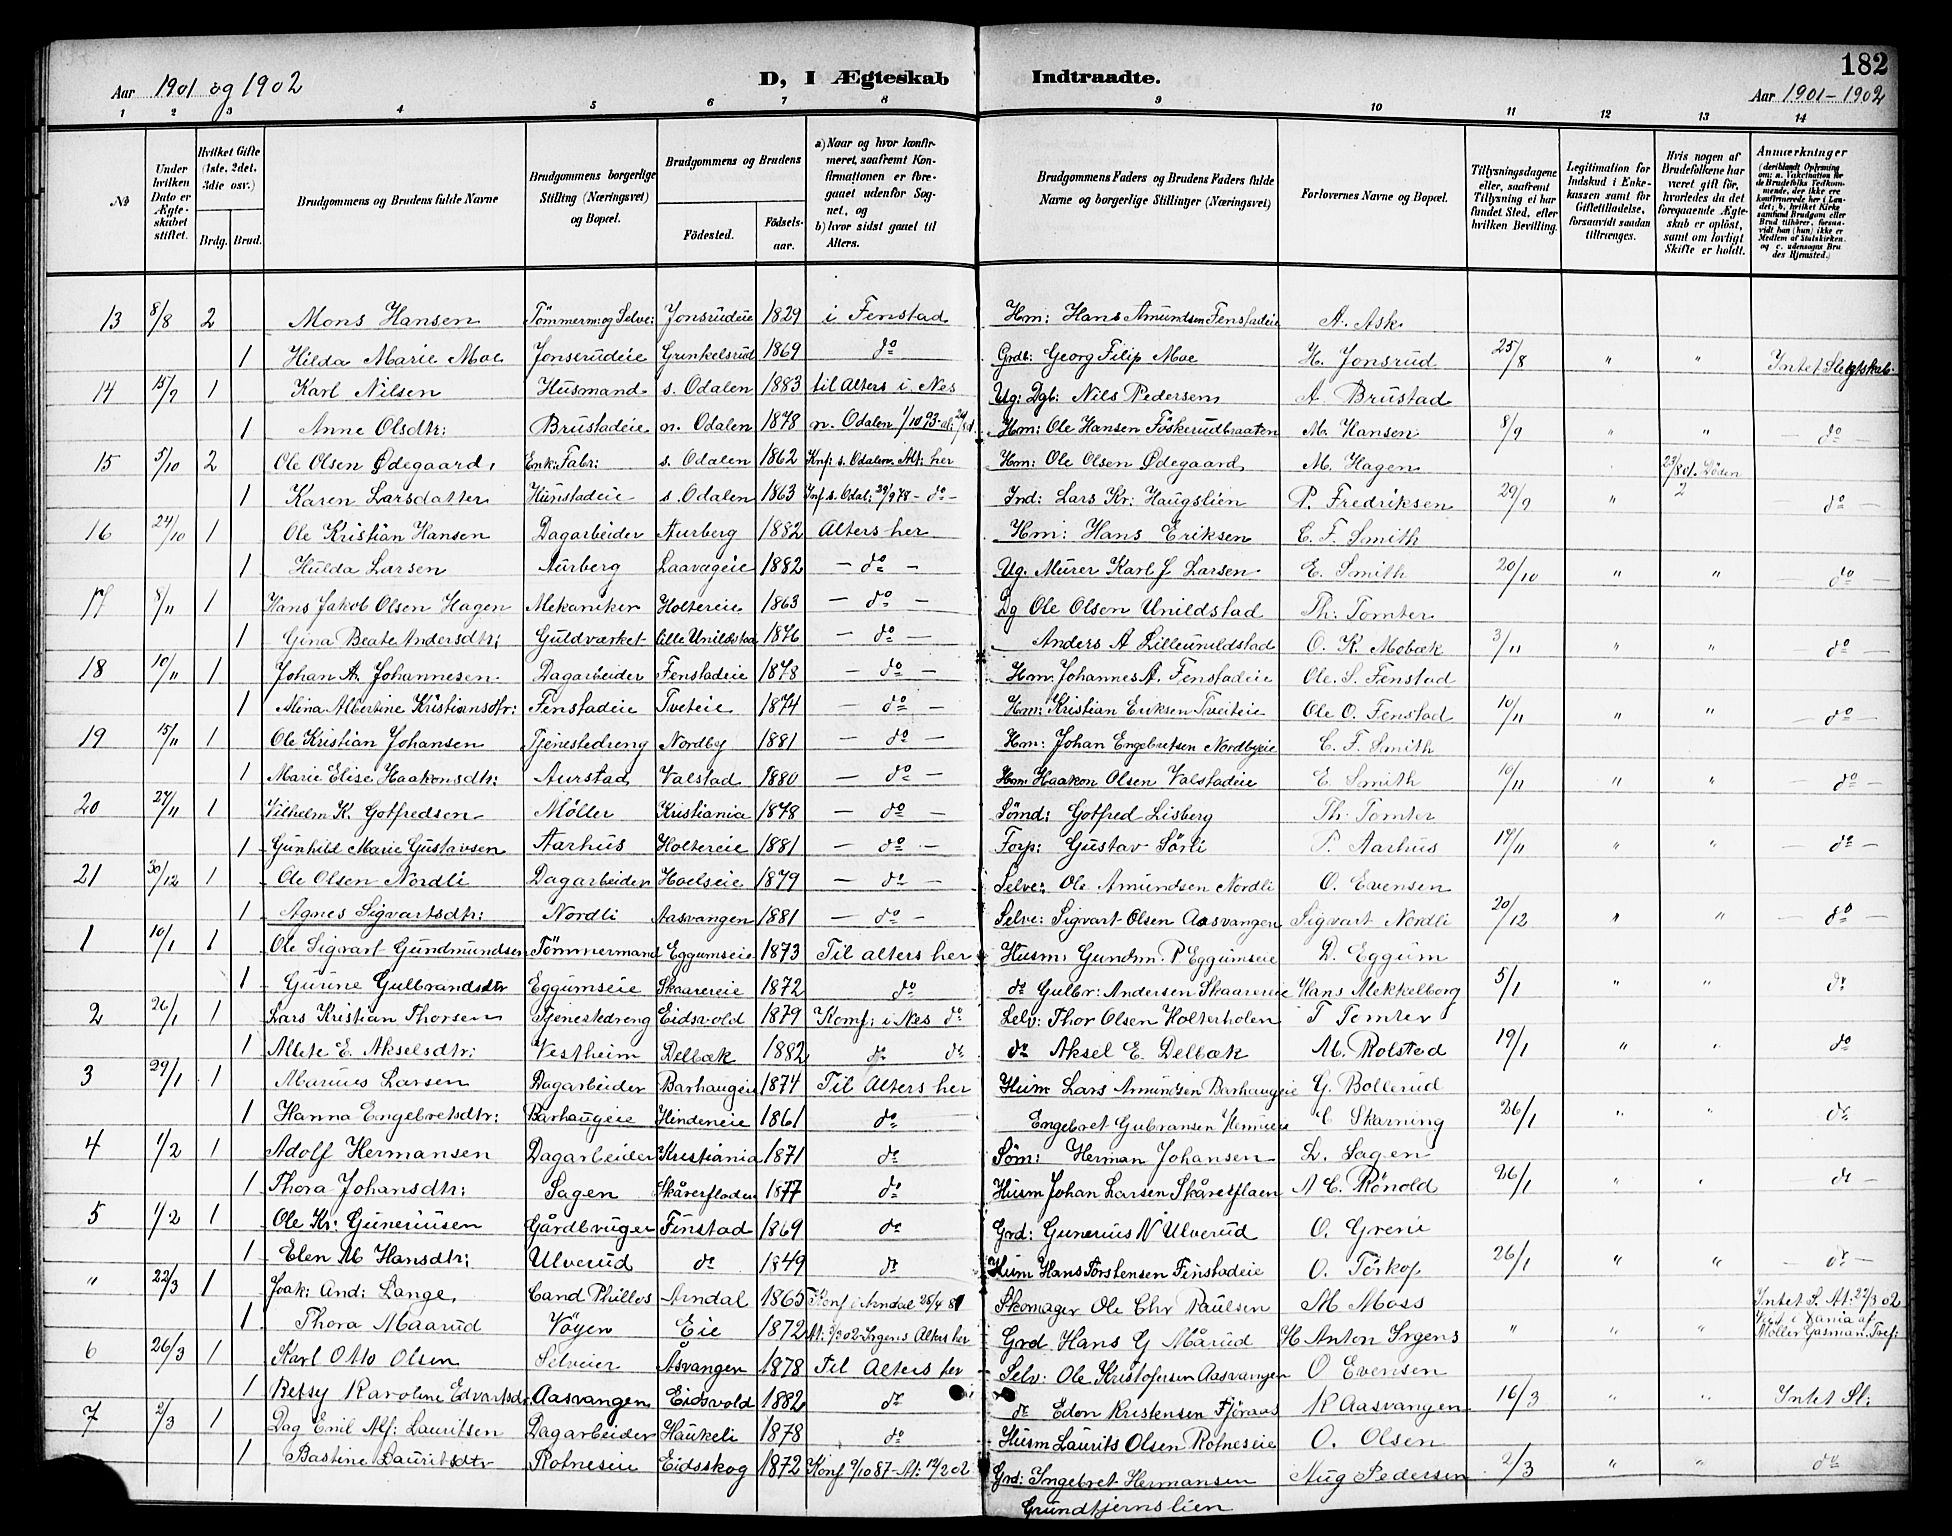 182
Aar 1901 og 1902 D, I Ægteskab Indtraadte. Aar 1901-1902
1 2 3 4 5 6 7 8 9 10 11 12 13 14
№ | Under hvilken Dato er Ægteskabet stiftet. | Hvilket Gifte (1ste, 2det, 3die osv.) Brdg. Brud. | Brudgommens og Brudens fulde Navne | Brudgommens borgerlige Stilling (Næringsvei) og Bopæl. | Brudgommens og Brudens Fødested. | Fødselsaar. | a) Naar og hvor konfirmeret, saafremt Konfirmationen er foregaaet udenfor Sognet, og b) hvor sidst gaaet til Alters. | Brudgommens Faders og Brudens Faders fulde Navne og borgerlige Stillinger (Næringsvei) | Forlovernes Navne og Bopæl. | Tillysningsdagene eller, saafremt Tillysning ei har fundet Sted, efter hvilken Bevilling. | Legitimation for Indskud i Enkekassen samt for Giftetilladelse, forsaavidt saadan tiltrænges. | Hvis nogen af Brudefolkene har været gift før, hvorledes da det foregaaende Ægteskab er opløst, samt om lovligt Skifte er holdt. | Anmærkninger
13 8/8 2 Mons Hansen Tömmerm: og Selve: Jonsrudeie 1829 i Fenstad Hm: Hans Amundsen Fenstadeie A. Ask
1 Hilda Marie Moe Jonsrudeie Grinkelsrud 1869 do Grdb: Georg Filip Moe H. Jonsrud 25/8 " " Intet Slegtskab
14 15/9 1 Karl Nilsen Husmand s. Odalen 1883 til Alters i Nes Ug: Dgb: Nils Pedersen A Brustad
1 Anne Olsdtr: Brustadeie n. Odalen 1878 n. Odalen 1/10 93 Hm: Ole Hansen Föskerudbraaten M. Hansen 8/9 " " - do -
15 5/10 2 Ole Olsen Ødegaard, Enk: Fabr: s. Odalen 1862 Knf: s. Odalen. Alt: her Hm: Ole Olsen Ødegaard M. Hagen
1 Karen Larsdatter Hunstadeie s. Odalen 1863 Knf s. Odal: 29/9 78 - do - Ind: Lars Kr: Haugslien P. Fredriksen 29/9 " 2 do -
16 24/10 1 Ole Kristian Hansen Dagarbeider Aurberg 1882 Alters her Hm: Hans Eriksen E. F. Smith
1 Hulda Larsen Aurberg Laavegeie 1882 - do - Ug. Murer Karl J Larsen E. Smith 20/10 " " - do -
17 8/11 1 Hans Jakob Olsen Hagen Mekaniker Holtereie 1863 - do - Dg Ole Olsen Unildstad Th: Tomter
1 Gina Beate Andersdtr: Guldværket Lille Unildstad 1876 - do - Anders A Lilleunildstad O. K. Mobæk 3/11 " " - do -
18 10/11 1 Johan A. Johannesen Dagarbeider Fenstadeie 1878 - do - Hm. Johannes A. Fenstadeie Ole. S. Fenstad
1 Mina Albertine Kristiansdtr: Fenstadeie Tveteie 1874 - do - Hm: Kristian Eriksen Tveiteie Ole O. Fenstad 10/11 " " - do -
19 15/11 1 Ole Kristian Johansen Tjenestedreng Nordby 1881 - do - Hm: Johan Engebretsen Nordbyeie E. F. Smith
1 Marie Elise Haakonsdtr: Aurstad Valstad 1880 - do - Hm Haakon Olsen Valstadeie E. Smith 10/11 " " - do -
20 27/11 1 Vilhelm K. Gotfredsen Möller Kristiania 1878 - do - Sömd: Gotfred Lisberg Th: Tomter
1 Gunhild Marie Gustavsen Aarhus Holtereie 1881 - do - Forp: Gustav Sörli P. Aarhus 17/11 " " - do -
21 30/12 1 Ole Olsen Nordli Dagarbeider Hoelseie 1879 - do - Selve: Ole Amundsen Nordli O. Evensen
1 Agnes Sigvartsdtr: Nordli Aasvangen 1881 - do - Selve: Sigvart Olsen Aasvangen Sigvart Nordli 20/12 " " - do -
1 10/1 1 Ole Sigvart Gundmundsen Tömmermand Eggumseie 1873 Til alters her Husm: Gundm. P Eggumseie D. Eggum
1 Gurine Gulbrandsdtr Eggumseie Skaarereie 1872 do do Gulbr: Andersen Skaarereie Hans Mekkelborg 5/1 " " do
2 26/1 1 Lars Kristian Thorsen Tjenestedreng Eidsvold 1879 Komf: i Nes do Selv: Thor Olsen Holterholen T Tomter
1 Mete E. Akselsdtr: Vestheim Delbæk 1882 do do do Aksel E. Delbæk M. Rolstad 19/1 " " do
3 29/1 1 Marius Larsen Dagarbeider Barhaugeie 1874 Til Alters her Husm Lars Amundsen Barhaugeie G. Bollerud
1 Hanna Engebretsdtr: Barhaugeie Hindeneie 1861 do Engebret Gulbransen C Skarning 26/1 " " do
4 1/2 1 Adolf Hermansen Dagarbeider Kristiania 1871 do Söm: Herman Johansen L. Sagen
1 Thora Johansdtr: Sagen Skårerfladen 1877 do Husm Johan Larsen Skåresflaen A C. Rönold 26/1 " " do -
5 1/2 1 Ole Kr: Gunerиusen Gårdbruger Finstad 1869 do Grd: Gunerius N Ulverud O. Greni
1 Elen M Hansdtr: Ulverud do 1849 do Husm Hans Torstensen Finstadeie O. Törkop 26/1 " " - do -
" 22/3 1 Joak: And: Lange, Cand Phillos Arndal 1865 Konf i Arndal 25/4 81 Skomager Ole Chr Paulsen M Moss Intet S. At: 22/3 02
1 Thora Maarud Vöyen Eie 1872 At: 9/3 02 Irgens Alters her Grd Hans G Mårud H Anton Irgens " " " Viet i Kania af Möller Gasman. Tref:
6 26/3 1 Karl Otto Olsen Selveier Åsvangen 1878 Til Alters her Selv: Ole Kristofersen Aasvangen O Evensen
1 Betsy Karoline Edvartsdr Aasvangen Eidsvold 1882 do do Edon Kristensen Fjöraas K Aasvangen 16/3 " " Intet Sl:
7 2/3 1 Dag Emil Alf: Lauritsen Dagarbeider Haukeli 1878 do Husm Laurits Olsen Rotneseie O. Olsen
1 Bastine Lauritsdtr Rotneseie Eidsskog 1872 Konf 9/10 87 - At: 19/2 02 Grd: Ingebret Hermansen Aug Pedersen 2/3 " " do
Grundtjernslien